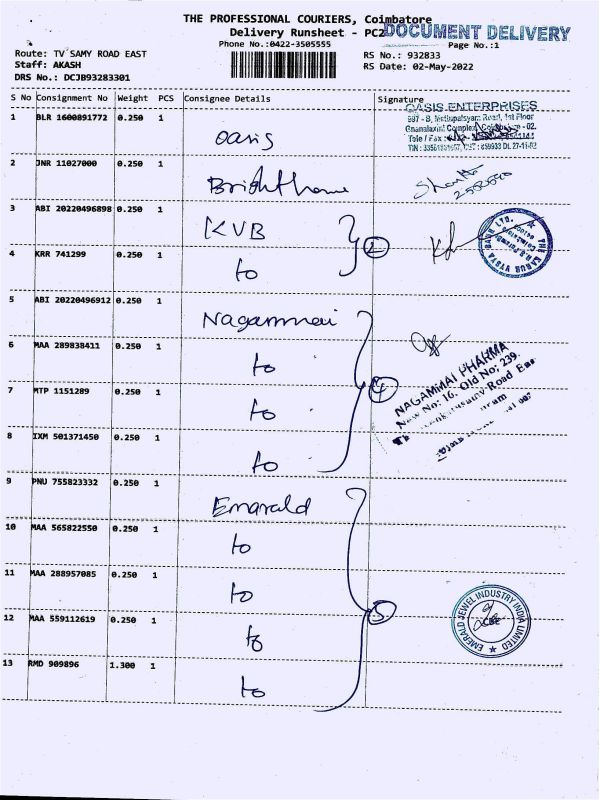 THE PROFESSIONAL COURIERS, Coimbatore
Delivery Runsheet - PC2
DOCUMENT DELIVERY
Phone No.:0422-3505555
Page No.:1
Route: TV SAMY ROAD EAST
RS No.: 932833
Staff: AKASH
RS Date: 02-May-2022
DRS No.: DCJB93283301
S No Consignment No Weight PCS Consignee Details Signature
OASIS ENTERPRISES
1 BLR 1600891772 0.250 1 oasis
2 JNR 11027000 0.250 1 Brighthome
3 ABI 20220496898 0.250 1 KVB
2
THE KARUR VYSYA BANK LTD.
4 KRR 741299 0.250 1 to
5 ABI 20220496912 0.250 1 Nagammai
6 MAA 289838411 0.250 1 to
NAGAMMAI PHARMA
New No: 16, Old No: 239,
Road East
7 MTP 1151289 0.250 1 to
4
8 IXM 501371450 0.250 1 to
9 PNU 755823332 0.250 1 Emarald
10 MAA 565822550 0.250 1 to
11 MAA 288957085 0.250 1 to
EMERALD JEWEL INDUSTRY INDIA LIMITED
12 MAA 559112619 0.250 1 to
5
13 RMD 909896 1.300 1 to